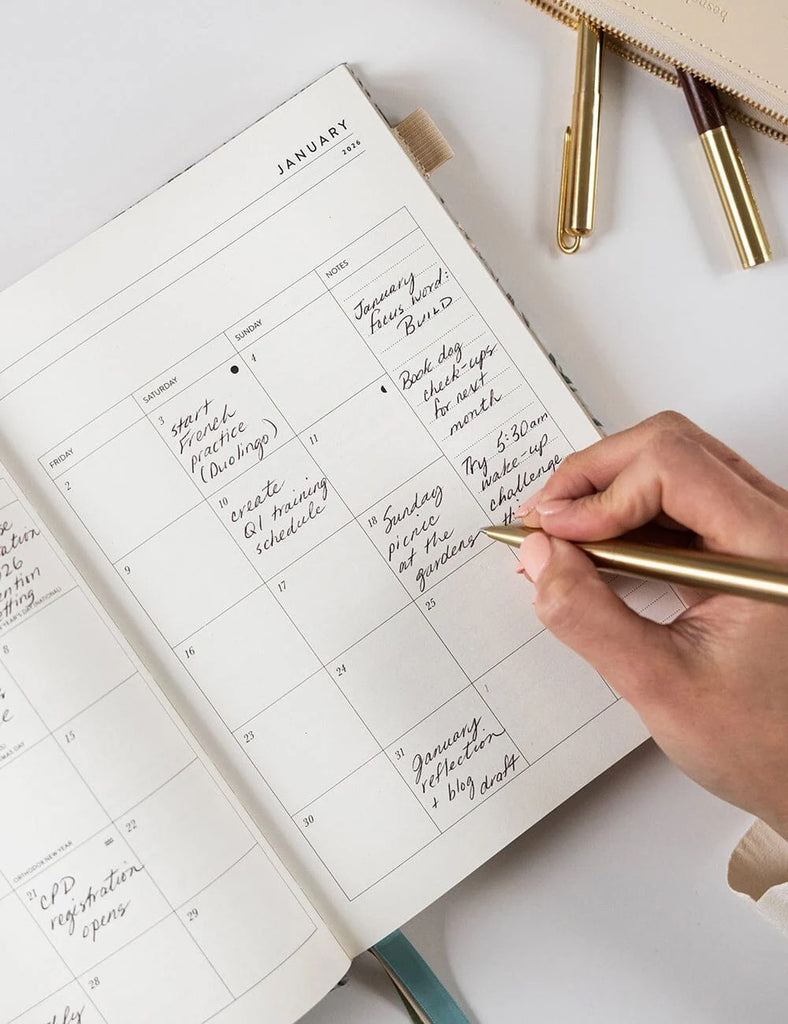 JANUARY
2026
FRIDAY
SATURDAY
SUNDAY
NOTES
2
3
start
French
practice
(Duolingo)
4
January
focus word:
BUILD
Book dog
check-ups
for next
month
Try 5:30am
wake-up
challenge
9
10
create
Q1 training
schedule
11
16
17
18
Sunday
picnic
at the
gardens
23
24
25
30
31
January
reflection
+ blog draft
1
8
15
ORTHODOX NEW YEAR
21
CPD
registration
opens
22
28
29